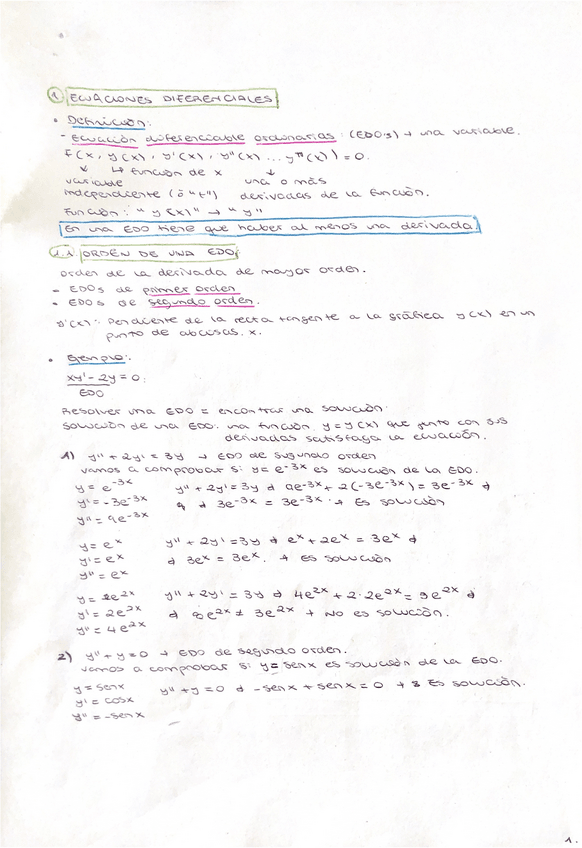 ① ECUACIONES DIFERENCIALES
• Definición:
- Ecuación diferenciable ordinarias: (EDO's) → una variable.
F(x, y(x), y'(x), y''(x) ... yⁿ(x)) = 0.
↓ ↳ función de x ↓
variable una o más
independiente (ó "t") derivadas de la función.
Función: "y(x)" → "y"
En una EDO tiene que haber al menos una derivada.
1.1 ORDEN DE UNA EDO:
orden de la derivada de mayor orden.
- EDOs de primer orden
- EDOs de segundo orden.
y'(x): Pendiente de la recta tangente a la gráfica y(x) en un
punto de abcisas, x.
• Ejemplo:
xy' - 2y = 0.
EDO
Resolver una EDO = encontrar una solución.
Solución de una EDO: una función y = y(x) que junto con sus
derivadas satisfaga la ecuación.
1) y'' + 2y' = 3y → EDO de segundo orden
vamos a comprobar si y = e^-3x es solución de la EDO.
y = e^-3x y'' + 2y' = 3y 9e^-3x + 2(-3e^-3x) = 3e^-3x
y' = -3e^-3x 3e^-3x = 3e^-3x → Es solución
y'' = 9e^-3x
y = e^x y'' + 2y' = 3y e^x + 2e^x = 3e^x
y' = e^x 3e^x = 3e^x. → Es solución
y'' = e^x
y = e^2x y'' + 2y' = 3y 4e^2x + 2·2e^2x = 3e^2x
y' = 2e^2x 8e^2x ≠ 3e^2x → No es solución.
y'' = 4e^2x
2) y'' + y = 0 → EDO de segundo orden.
vamos a comprobar si y = senx es solución de la EDO.
y = senx y'' + y = 0 -senx + senx = 0 → Es solución.
y' = cosx
y'' = -senx
1.